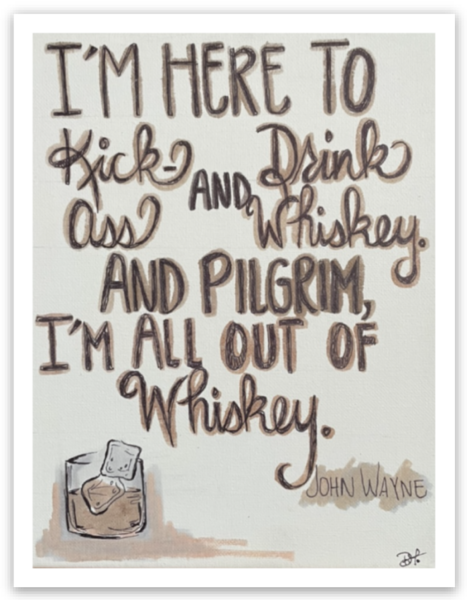 I'M HERE TO
Kick-Ass AND Drink Whiskey.
AND PILGRIM,
I'M ALL OUT OF
Whiskey.
JOHN WAYNE